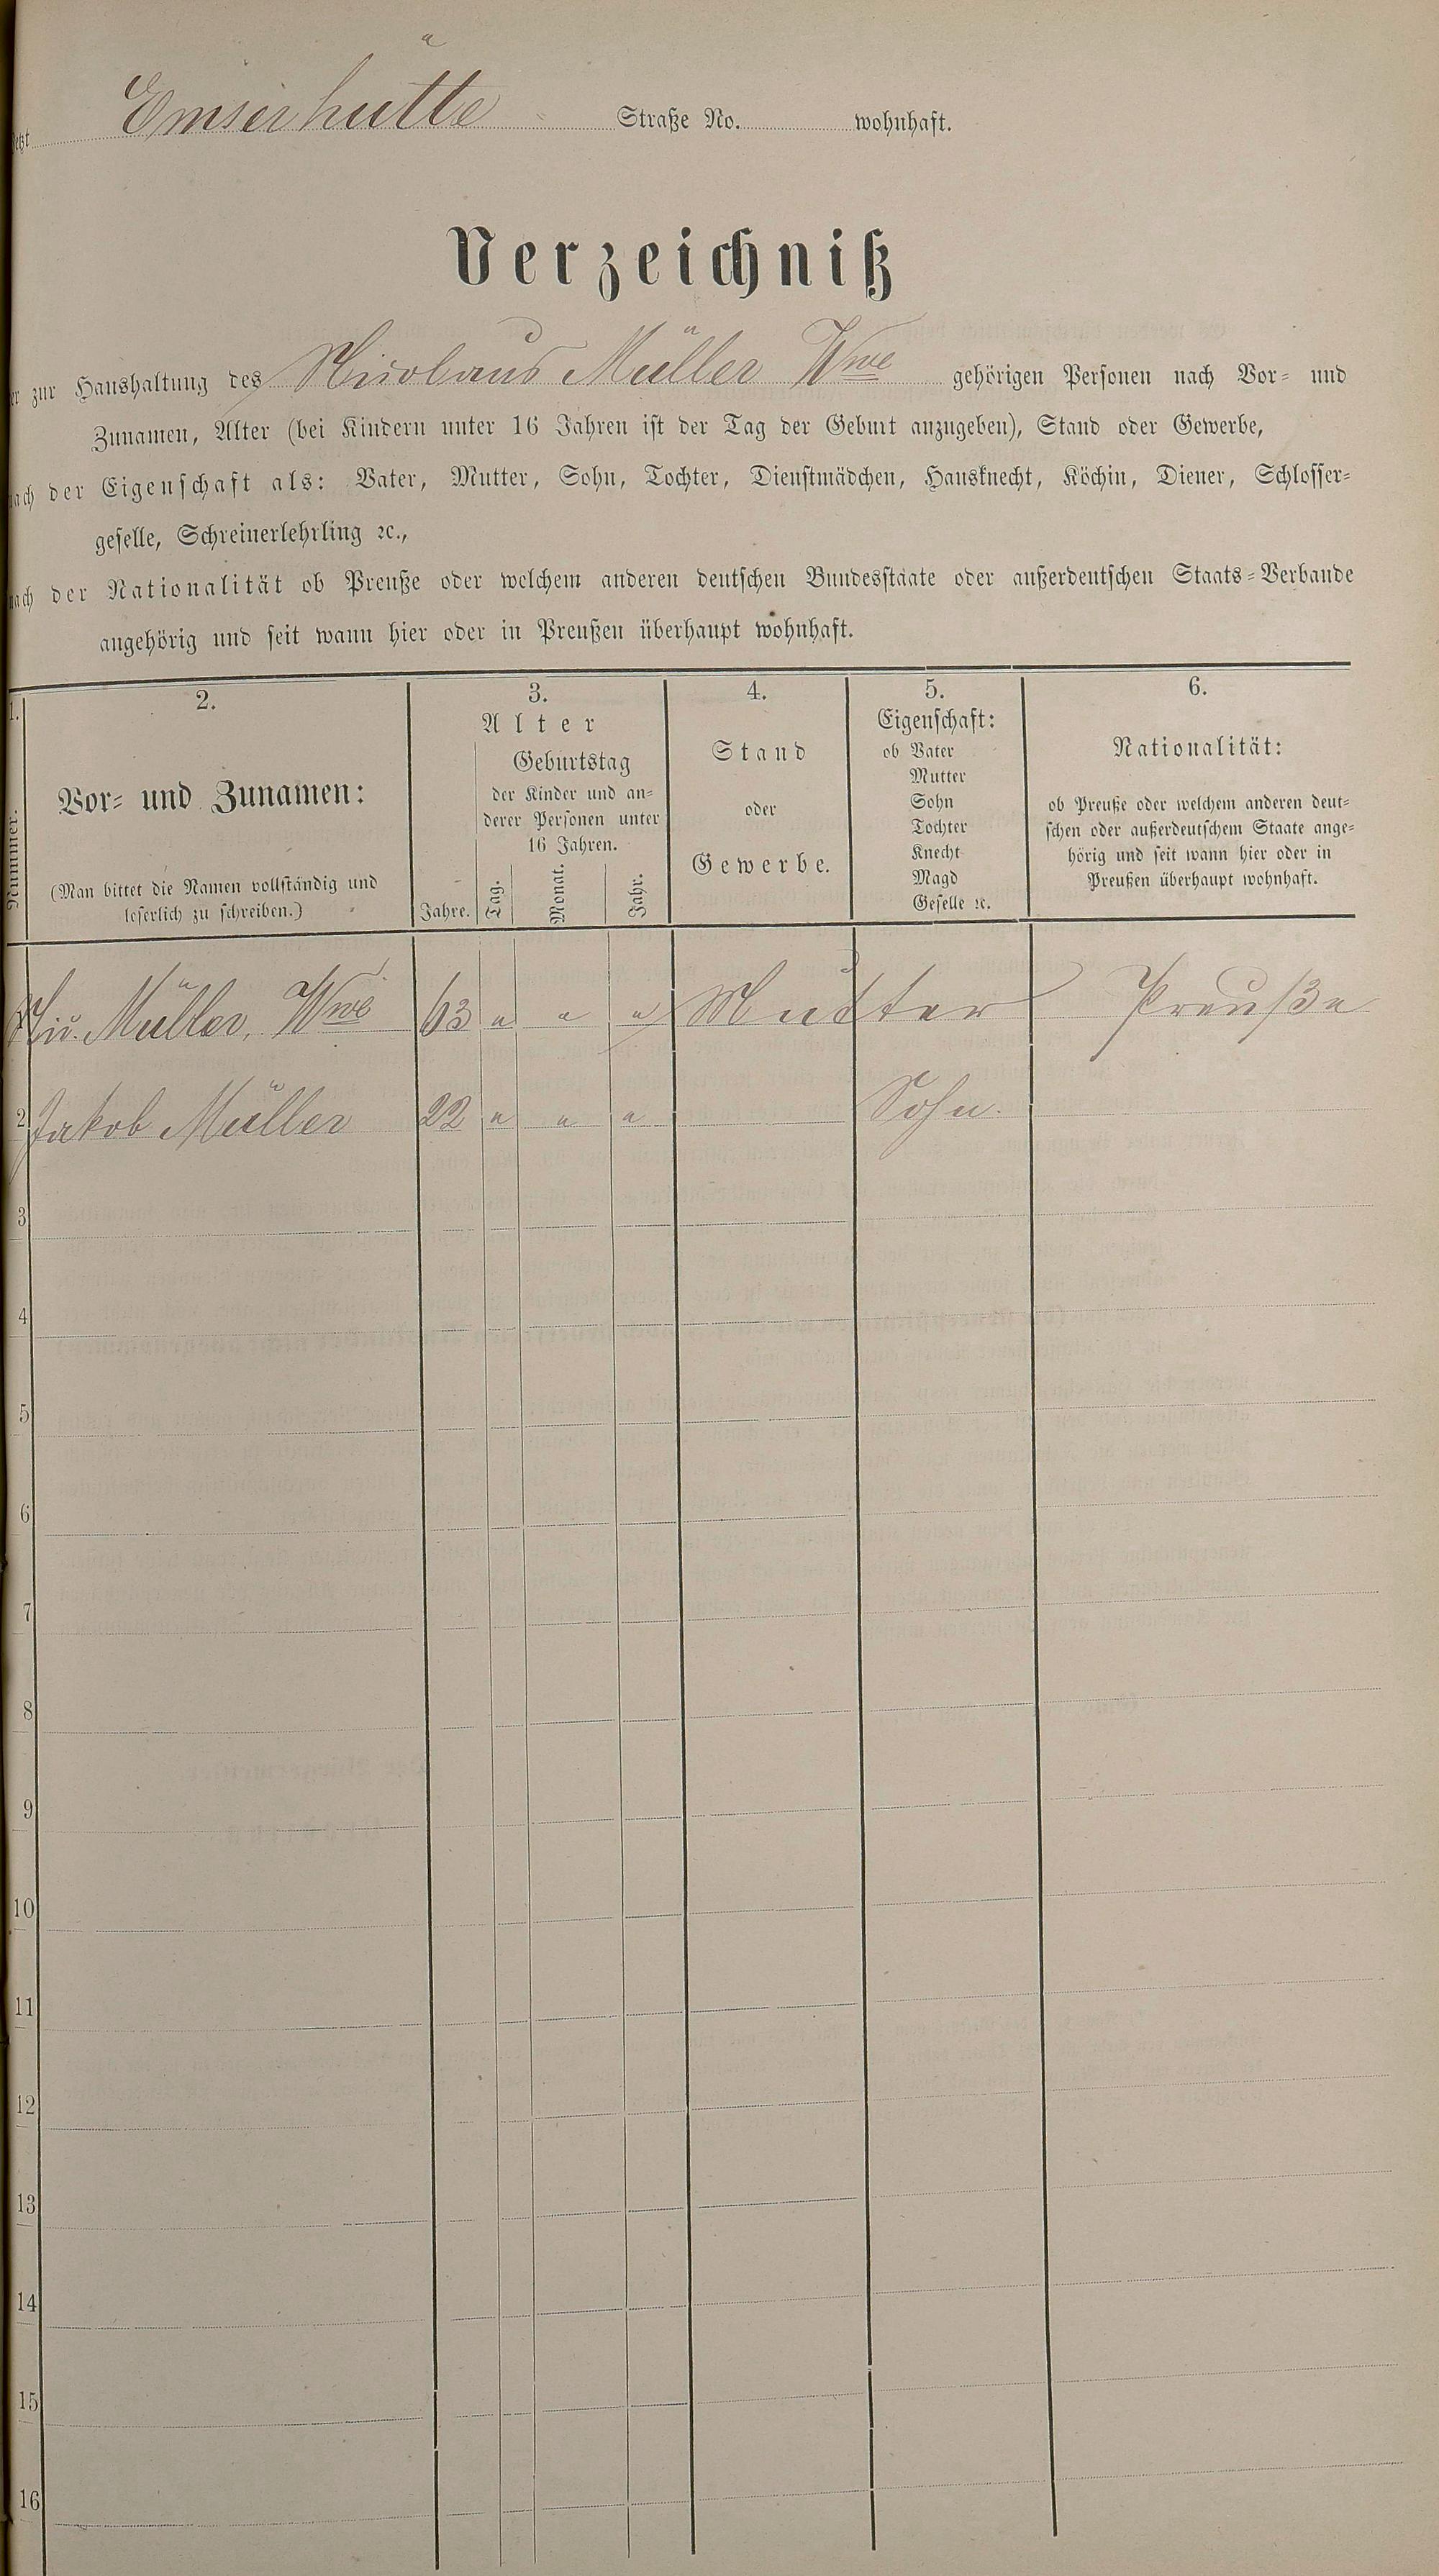 jetzt Emserhütte Straße No. wohnhaft.
Verzeichniß
er zur Haushaltung des Nicolaus Müller Wwe gehörigen Personen nach Vor- und
Zunamen, Alter (bei Kindern unter 16 Jahren ist der Tag der Geburt anzugeben), Stand oder Gewerbe,
nach der Eigenschaft als: Vater, Mutter, Sohn, Tochter, Dienstmädchen, Hausknecht, Köchin, Diener, Schlosser-
geselle, Schreinerlehrling ꝛc.,
nach der Nationalität ob Preuße oder welchem anderen deutschen Bundesstaate oder außerdeutschen Staats-Verbande
angehörig und seit wann hier oder in Preußen überhaupt wohnhaft.
1.
Nummer.
2.
Vor- und Zunamen:
(Man bittet die Namen vollständig und
leserlich zu schreiben.)
3.
Alter
Geburtstag
der Kinder und an-
derer Personen unter
16 Jahren.
Jahre. Tag. Monat. Jahr.
4.
Stand
oder
Gewerbe.
5.
Eigenschaft:
ob Vater
Mutter
Sohn
Tochter
Knecht
Magd
Geselle ꝛc.
6.
Nationalität:
ob Preuße oder welchem anderen deut-
schen oder außerdeutschem Staate ange-
hörig und seit wann hier oder in
Preußen überhaupt wohnhaft.
Nic. Müller, Wwe 63 " " " Mutter Preuße
2 Jakob Müller 22 " " " Sohn.
3
4
5
6
7
8
9
10
11
12
13
14
15
16